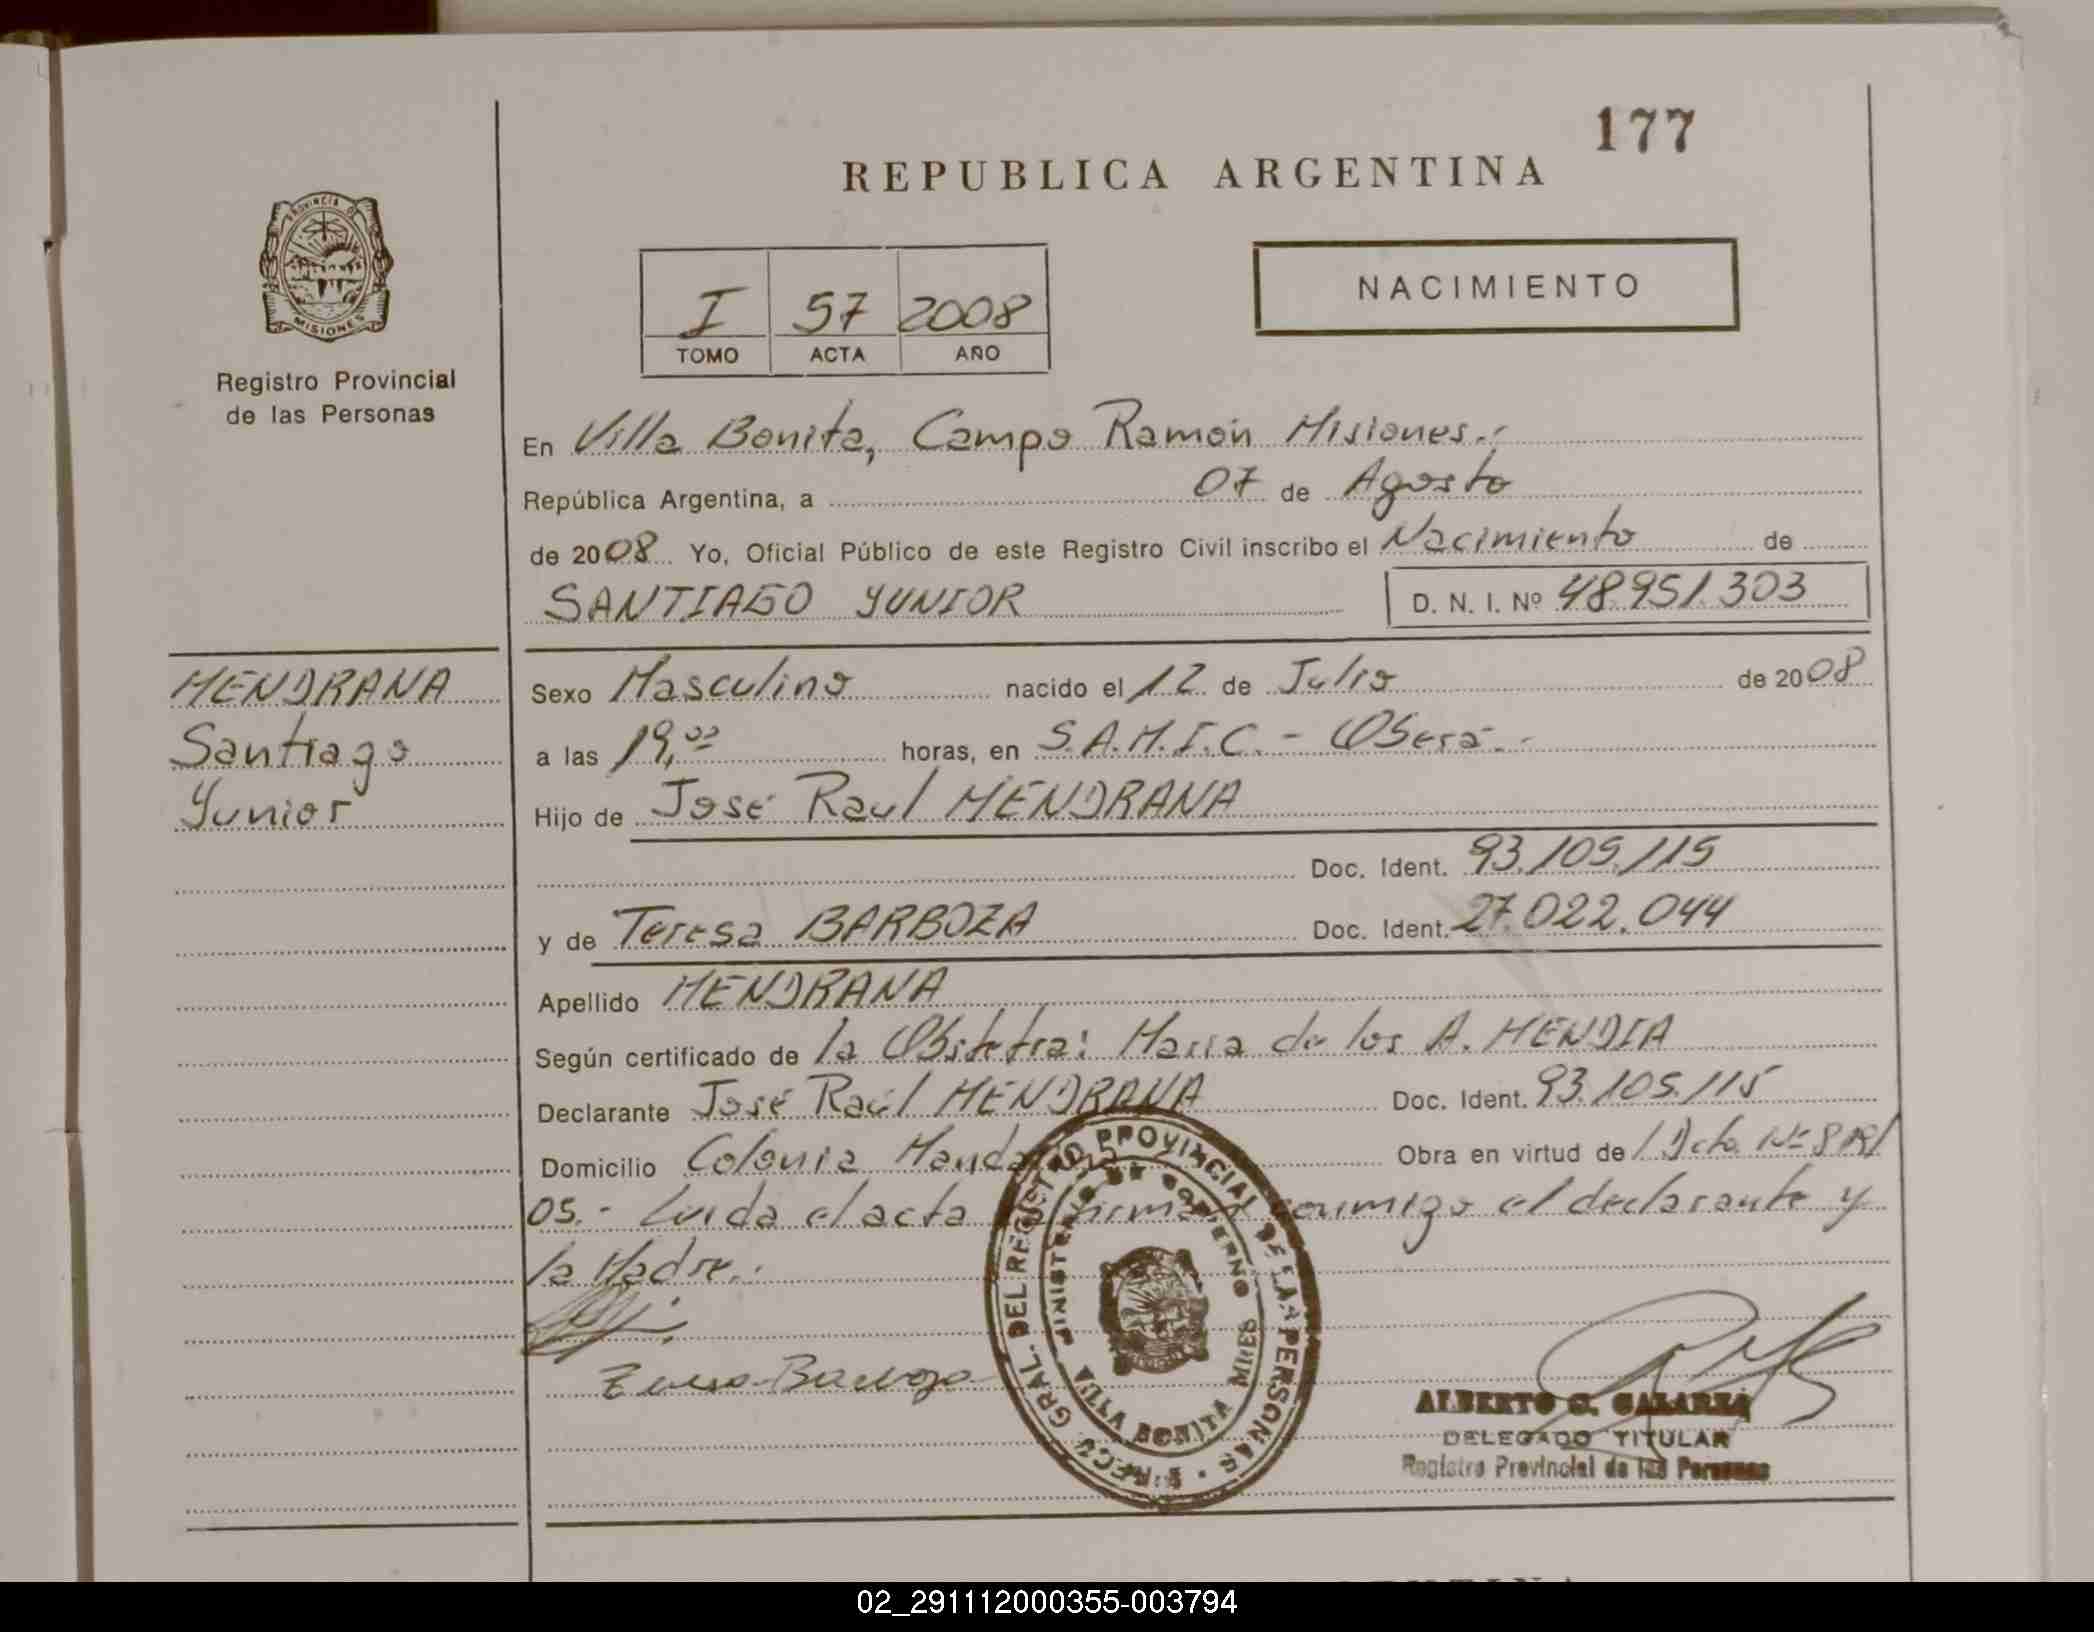 177
REPUBLICA ARGENTINA
PROVINCIA DE
MISIONES
Registro Provincial
de las Personas
I 57 2008
TOMO ACTA AÑO
NACIMIENTO
En Villa Bonita, Campo Ramón Misiones.-
República Argentina, a 07 de Agosto
de 2008 Yo, Oficial Público de este Registro Civil inscribo el Nacimiento de
SANTIAGO YUNIOR D. N. I. Nº 48.951.303
MENDRANA
Santiago
Yunior
Sexo Masculino nacido el 12 de Julio de 2008
a las 19,00 horas, en S.A.M.I.C. - Oberá.-
Hijo de José Raul MENDRANA
Doc. Ident. 93.105.115
y de Teresa BARBOZA Doc. Ident. 27.022.044
Apellido MENDRANA
Según certificado de la Obstetra: Maria de los A. MENDIA
Declarante José Raúl MENDRANA Doc. Ident. 93.105.115
Domicilio Colonia Obra en virtud de
05.- Leida el acta firman conmigo el declarante y
la Madre.-
DEL REGISTRO PROVINCIAL DE LAS PERSONAS
MINISTERIO DE GOBIERNO
VILLA BONITA MNES
ALBERTO G. GALARZA
DELEGADO TITULAR
Registro Provincial de las Personas
02_291112000355-003794